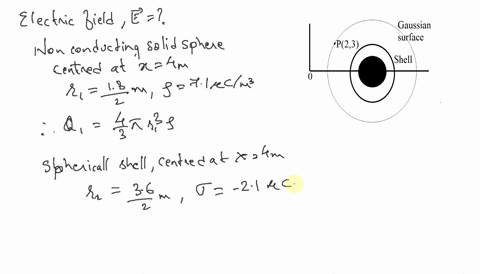 Electric field, E⃗ = ?.
Non conducting solid sphere
centred at x = 4m
r₁ = 1.8/2 m, ρ = 7.1 μC/m³
∴ Q₁ = 4/3 π r₁³ ρ
Spherical shell, centred at x = 4m
r₂ = 3.6/2 m, σ = -2.1 μC
Gaussian
surface
P(2,3)
Shell
0